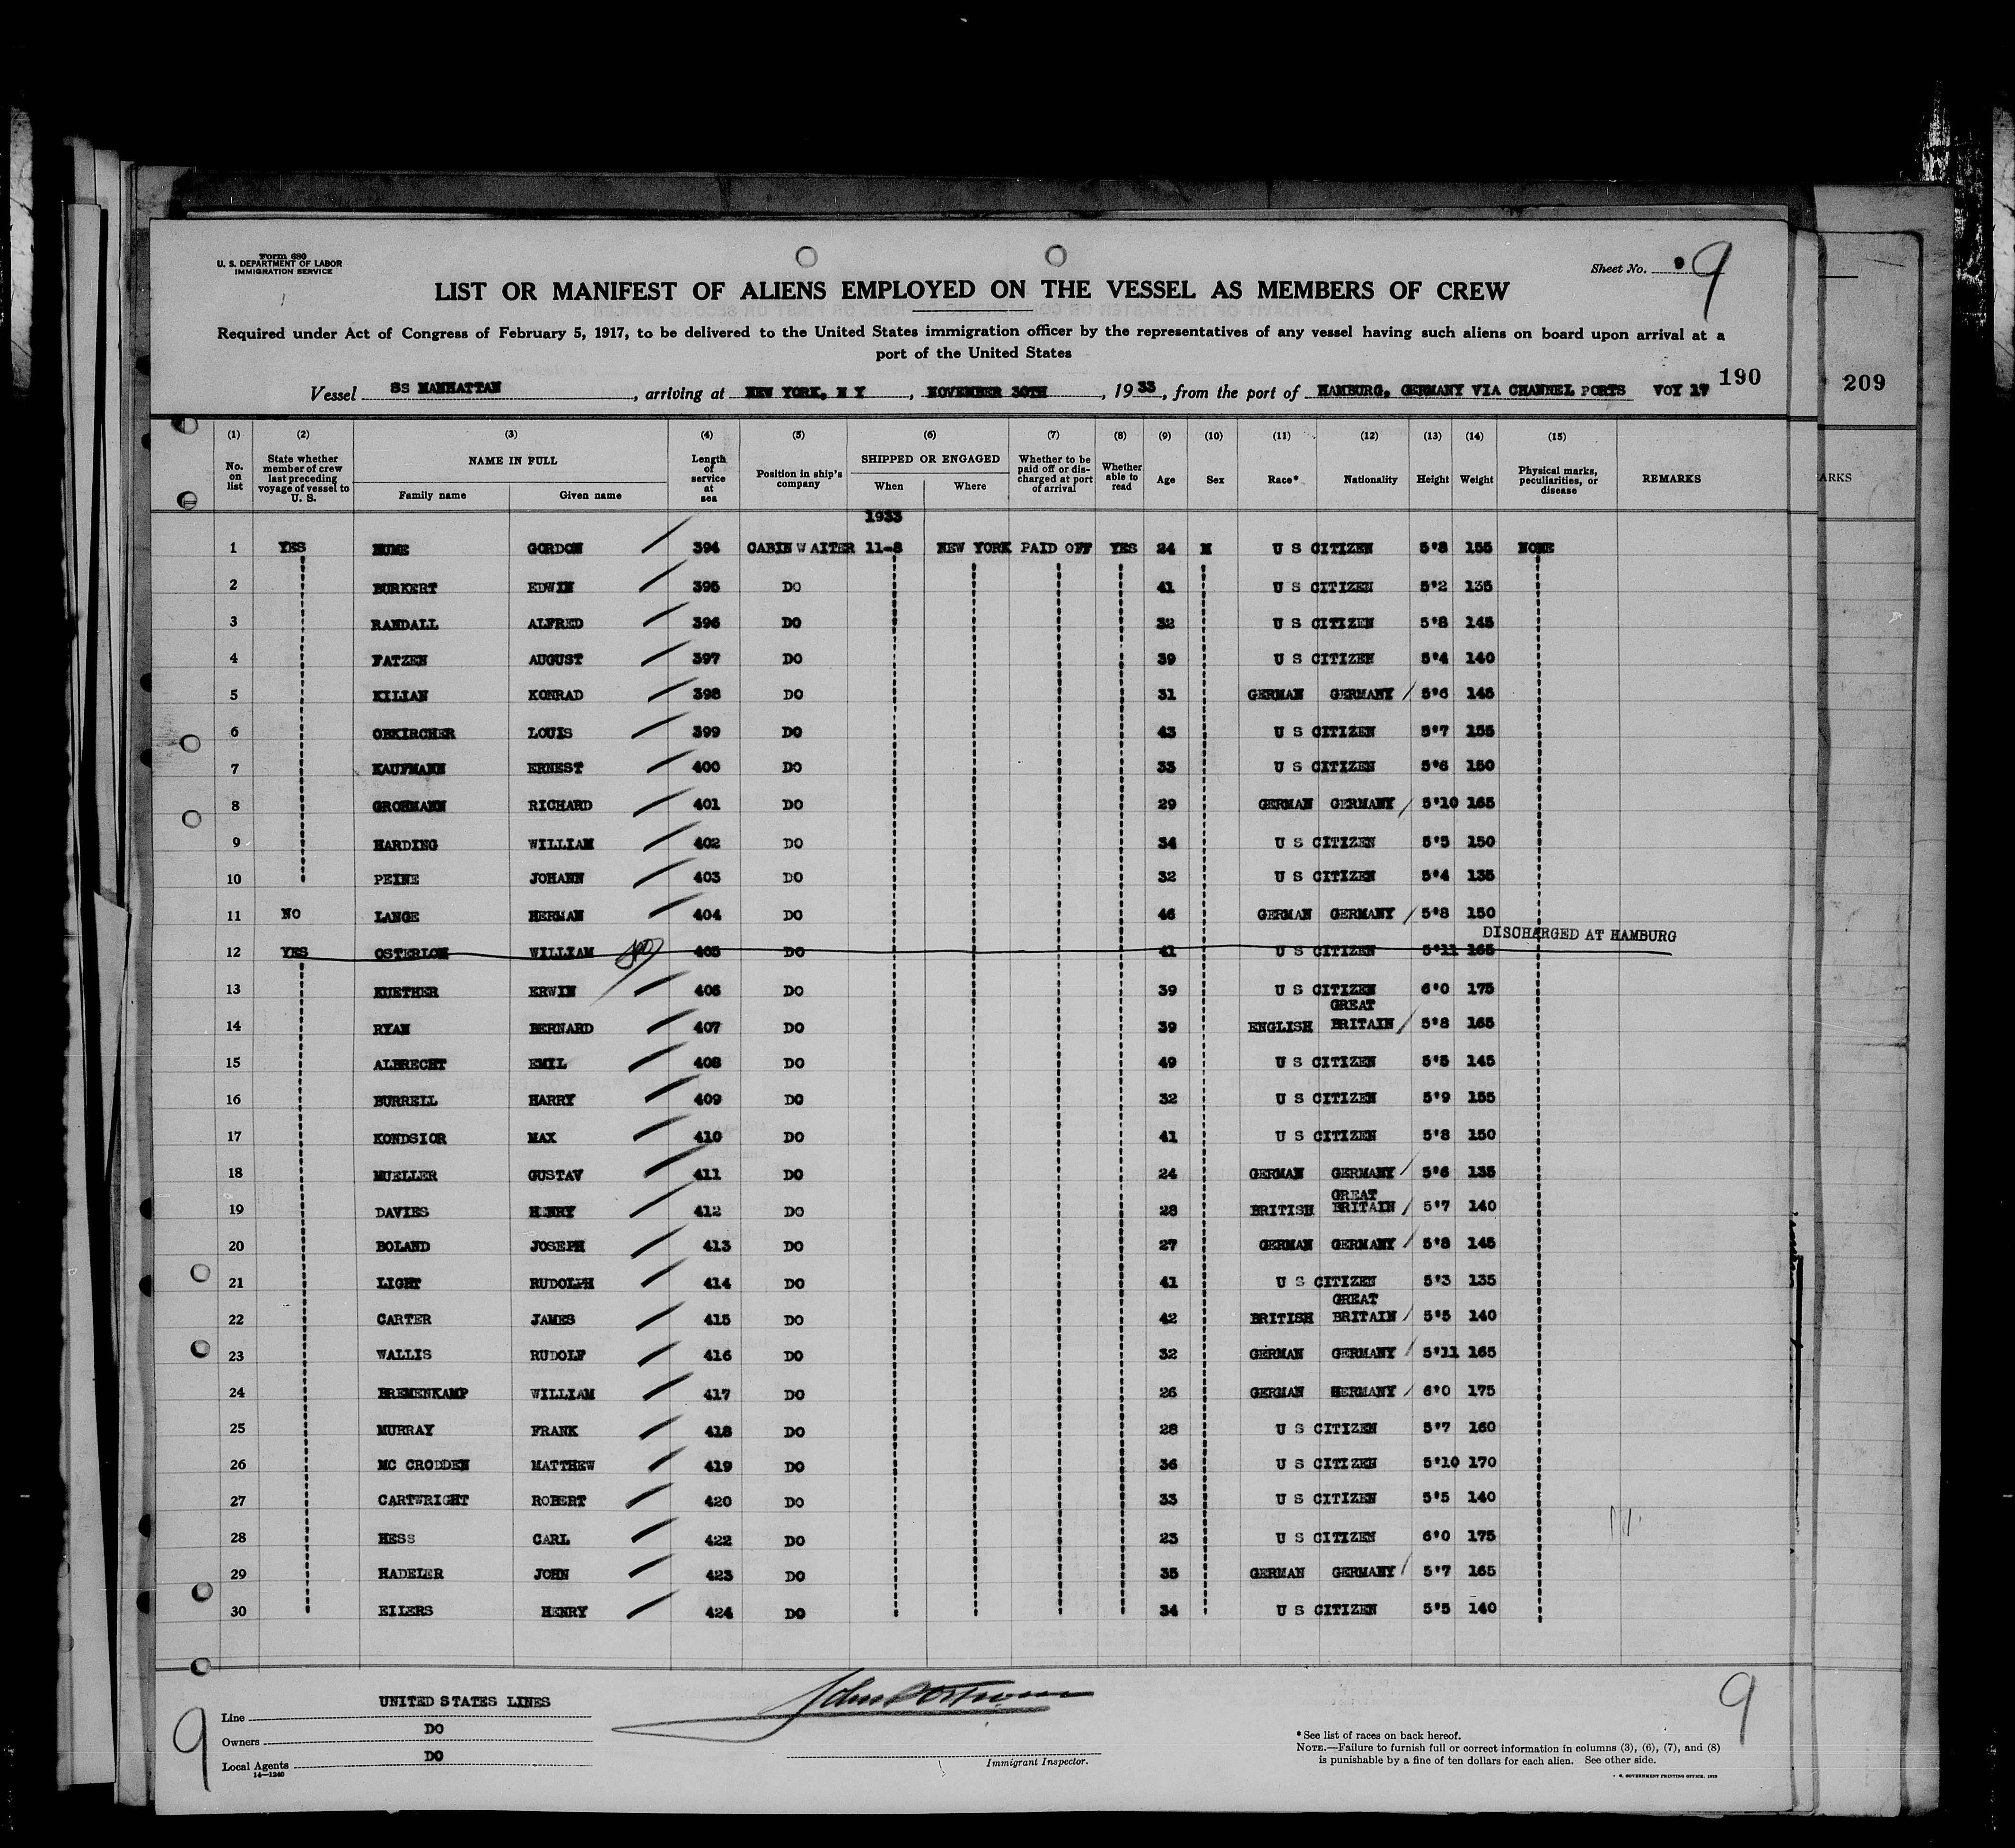 Form 680
U. S. DEPARTMENT OF LABOR
IMMIGRATION SERVICE
Sheet No. 9
LIST OR MANIFEST OF ALIENS EMPLOYED ON THE VESSEL AS MEMBERS OF CREW
Required under Act of Congress of February 5, 1917, to be delivered to the United States immigration officer by the representatives of any vessel having such aliens on board upon arrival at a
port of the United States
Vessel SS MANHATTAN , arriving at NEW YORK, N Y , NOVEMBER 30TH , 1933, from the port of HAMBURG, GERMANY VIA CHANNEL PORTS VOY 17 190
209
(1) (2) (3) (4) (5) (6) (7) (8) (9) (10) (11) (12) (13) (14) (15)
No. on list State whether member of crew last preceding voyage of vessel to U. S. NAME IN FULL Family name Given name Length of service at sea Position in ship's company SHIPPED OR ENGAGED When Where Whether to be paid off or discharged at port of arrival Whether able to read Age Sex Race* Nationality Height Weight Physical marks, peculiarities, or disease REMARKS
ARKS
1933
1 YES HUME GORDON 394 CABIN WAITER 11-8 NEW YORK PAID OFF YES 24 M U S CITIZEN 5'8 155 NONE
2 BURKERT EDWIN 395 DO 41 U S CITIZEN 5'2 135
3 RANDALL ALFRED 396 DO 32 U S CITIZEN 5'8 145
4 FATZEN AUGUST 397 DO 39 U S CITIZEN 5'4 140
5 KILIAN KONRAD 398 DO 31 GERMAN GERMANY 5'6 145
6 OBKIRCHER LOUIS 399 DO 43 U S CITIZEN 5'7 155
7 KAUFMANN ERNEST 400 DO 33 U S CITIZEN 5'6 150
8 GROHMANN RICHARD 401 DO 29 GERMAN GERMANY 5'10 165
9 HARDING WILLIAM 402 DO 34 U S CITIZEN 5'5 150
10 PEINE JOHANN 403 DO 32 U S CITIZEN 5'4 135
11 NO LANGE HERMAN 404 DO 46 GERMAN GERMANY 5'8 150
DISCHARGED AT HAMBURG
12 YES OSTERLOH WILLIAM 405 DO 41 U S CITIZEN 5'11 165
13 KUETHER ERWIN 406 DO 39 U S CITIZEN 6'0 175
14 RYAN BERNARD 407 DO 39 ENGLISH GREAT BRITAIN 5'8 165
15 ALBRECHT EMIL 408 DO 49 U S CITIZEN 5'5 145
16 BURRELL HARRY 409 DO 32 U S CITIZEN 5'9 155
17 KONDSIOR MAX 410 DO 41 U S CITIZEN 5'8 150
18 MUELLER GUSTAV 411 DO 24 GERMAN GERMANY 5'6 135
19 DAVIES HENRY 412 DO 28 BRITISH GREAT BRITAIN 5'7 140
20 BOLAND JOSEPH 413 DO 27 GERMAN GERMANY 5'8 145
21 LIGHT RUDOLPH 414 DO 41 U S CITIZEN 5'3 135
22 CARTER JAMES 415 DO 42 BRITISH GREAT BRITAIN 5'5 140
23 WALLIS RUDOLF 416 DO 32 GERMAN GERMANY 5'11 165
24 BREMENKAMP WILLIAM 417 DO 26 GERMAN GERMANY 6'0 175
25 MURRAY FRANK 418 DO 28 U S CITIZEN 5'7 160
26 MC CRODDEN MATTHEW 419 DO 36 U S CITIZEN 5'10 170
27 CARTWRIGHT ROBERT 420 DO 33 U S CITIZEN 5'5 140
28 HESS CARL 422 DO 23 U S CITIZEN 6'0 175
29 HADELER JOHN 423 DO 35 GERMAN GERMANY 5'7 165
30 EILERS HENRY 424 DO 34 U S CITIZEN 5'5 140
9
Line UNITED STATES LINES
Owners DO
Local Agents DO
14—1240
Immigrant Inspector.
9
* See list of races on back hereof.
NOTE.—Failure to furnish full or correct information in columns (3), (6), (7), and (8)
is punishable by a fine of ten dollars for each alien. See other side.